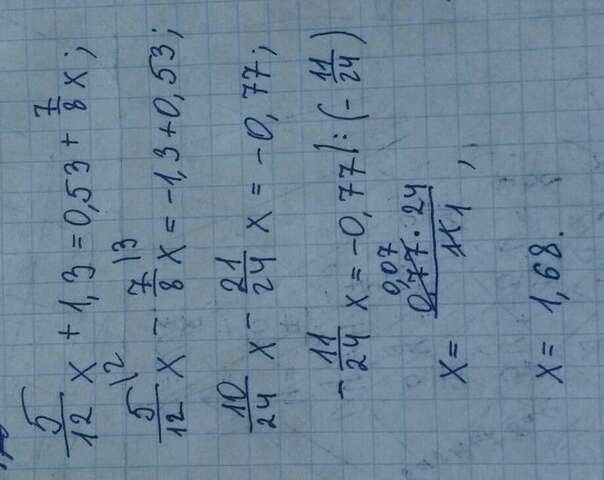 5/12 x + 1,3 = 0,53 + 7/8 x;
5/12 \2 x - 7/8 \3 x = -1,3 + 0,53;
10/24 x - 21/24 x = -0,77;
-11/24 x = -0,77 | : (-11/24)
x = 0,77 0,07 · 24 / 11 1 ,
x = 1,68.